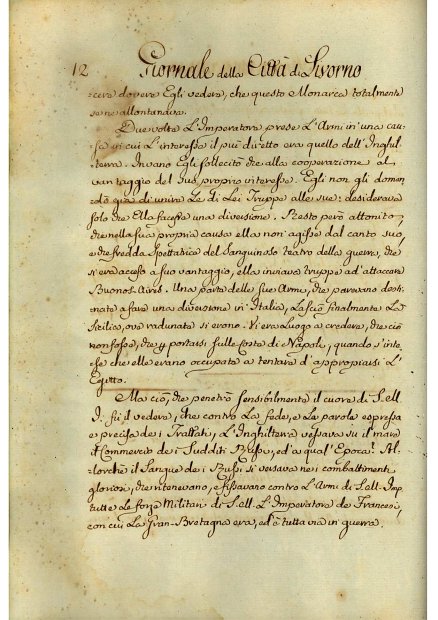 12 Giornale della Città di Livorno
cera dovera Egli vedera, che questo Monarca totalmente
se ne allontanava.
Due volte L'Imperatore prese L'Armi in una cau-
sa in cui L'interesse il più diretto era quello dell'Inghil-
terra. Invano Egli sollecitò che alla cooperazione al
vantaggio del suo proprio interesse. Egli non gli doman-
dò già di unire Le di Lei Truppe alle sue: desiderava
solo che Ella facesse una diversione. Restò però attonito,
che nella sua propria causa ella non agisse dal canto suo,
e che fredda Spettatrice del Sanguinoso teatro della guerra, che
si era acceso a suo vantaggio, ella inviava truppe ad attaccare
Buenos-Aires. Una parte delle sue Armi, che parevano desti-
nate a fare una diversione in Italia, Lasciò finalmente La
Sicilia, ove radunate si erano. Vi era Luogo a credere, che ciò
non fosse, che p portarsi sulle Coste di Napoli, quando s'inte-
se che elle erano occupate a tentare d'appropriarsi L'
Egitto.
Ma ciò, che penetrò sensibilmente il cuore di S. ell.
I. fu il vedere, che contro La fede, e La parola espressa
e precisa dei Trattati, L'Inghilterra vessava su il mare
il Commercio dei Sudditi Russi, ed a qual'Epoca? Al-
lorchè il Sangue dei Russi si versava nei combattimenti
gloriosi, che ritenevano, e fissavano contro L'Armi di S. ell. Imp.
tutte Le forze Militari di S. ell. L'Imperatore de Francesi,
con cui La Gran-Bretagna era, ed è tutta via in guerra.